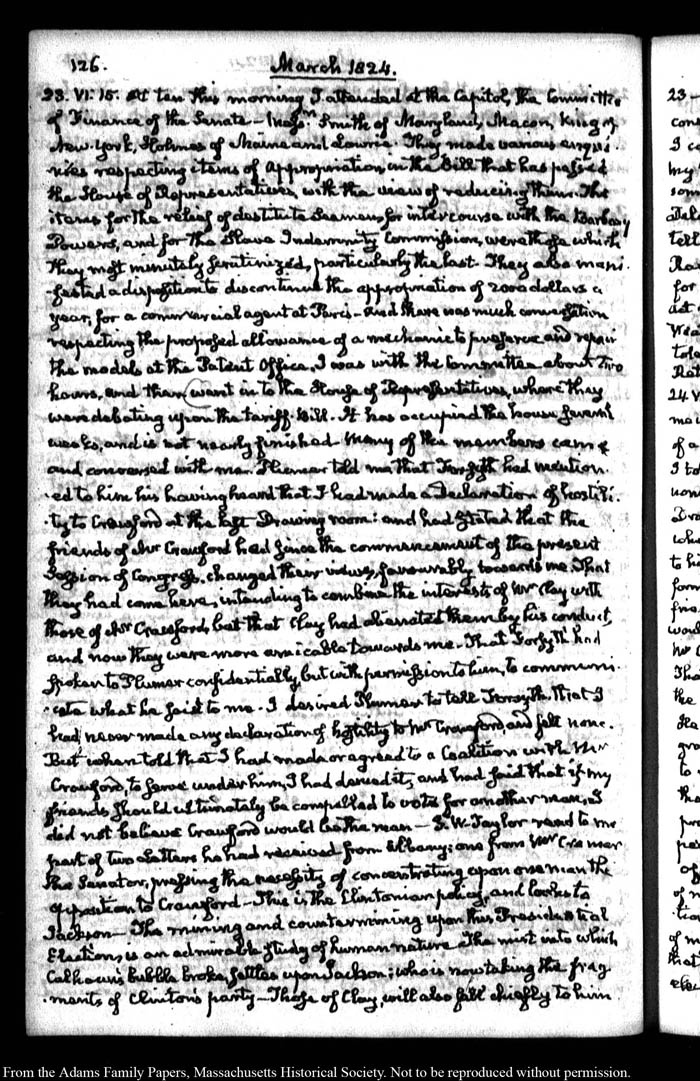 126. March 1824.
23. VI: 15. At ten this morning I attended at the Capitol, the Committee
of Finance of the Senate — Messrs Smith of Maryland, Macon, King of
New-York, Holmes of Maine and Lowrie. They made various enqui-
ries respecting items of appropriation, in the Bill that has passed
the House of Representatives, with the view of reducing them. The
items for the relief of destitute Seamen, for intercourse with the Barbary
Powers, and for the Slave Indemnity Commission, were those which
they most minutely scrutinized, particularly the last. They also mani-
-fested a disposition to discontinue the appropriation of 2000 dollars a
year, for a commercial agent at Paris — And there was much conversation
respecting the proposed allowance of a mechanic to preserve and repair
the models at the Patent Office. I was with the Committee about two
hours, and then went in to the House of Representatives, where they
were debating upon the tariff-Bill. It has occupied the house several
weeks, and is not nearly finished. Many of the members came
and conversed with me. Plumer told me that Forsyth had mention-
-ed to him his having heard that I had made a Declaration of hostili-
-ty to Crawford at the last Drawing room: and had stated that the
friends of Mr Crawford had since the commencement of the present
Session of Congress, changed their views, favourably towards me. That
they had come here, intending to combine the interests of Mr Clay with
those of Mr Crawford, but that Clay had alienated them by his conduct,
and now they were more amicable towards me. That Forsyth had
spoken to Plumer confidentially, but with permission to him, to communi-
-cate what he said to me. I desired Plumer to tell Forsyth that I
had never made any declaration of hostility to Mr Crawford, and felt none.
But when told that I had made or agreed to a Coalition with Mr
Crawford, to serve under him, I had denied it, and had said that if my
friends should ultimately be compelled to vote for another man, I
did not believe Crawford would be the man — J. W. Taylor read to me
part of two Letters he had received from Albany; one from Mr Cramer
the Senator, pressing the necessity of concentrating upon one man the
opposition to Crawford — This is the Clintonian policy, and looks to
Jackson — The mining and countermining upon this Presidential
Election, is an admirable study of human nature. The mist into which
Calhoun's bubble broke, settles upon Jackson; who is now taking the frag-
-ments of Clinton's party — Those of Clay, will also fall chiefly to him
23 -
24 V
From the Adams Family Papers, Massachusetts Historical Society. Not to be reproduced without permission.